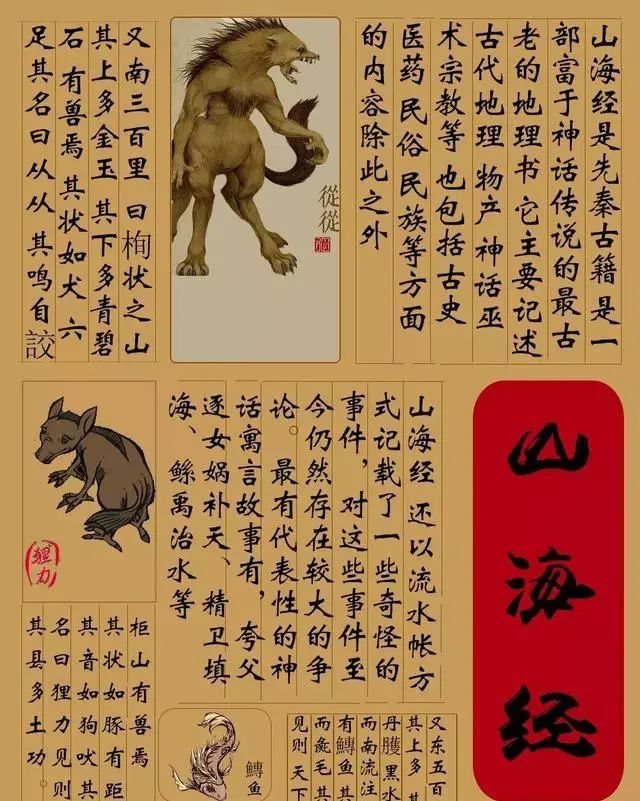 山海经是先秦古籍是一
部富于神话传说的最古
老的地理书它主要记述
古代地理 物产 神话巫
术宗教等 也包括古史
医药 民俗 民族等方面
的内容除此之外
從從
又南三百里 曰栒状之山
其上多金玉 其下多青碧
石 有兽焉 其状如犬 六
足其名曰从从 其鸣自詨
山海经
山海经 还以流水帐方
式记载了一些奇怪的
事件，对这些事件至
今仍然存在较大的争
论。最有代表性的神
话寓言故事有，夸父
逐女娲补天、精卫填
海、鲧禹治水等
狸力
柜山有兽焉
其状如豚有距
其音如狗吠其
名曰狸力见则
其县多土功。
鱄鱼
又东五百
其上多
丹雘黑水
而南流注
有鱄鱼其
而彘毛其
见则天下